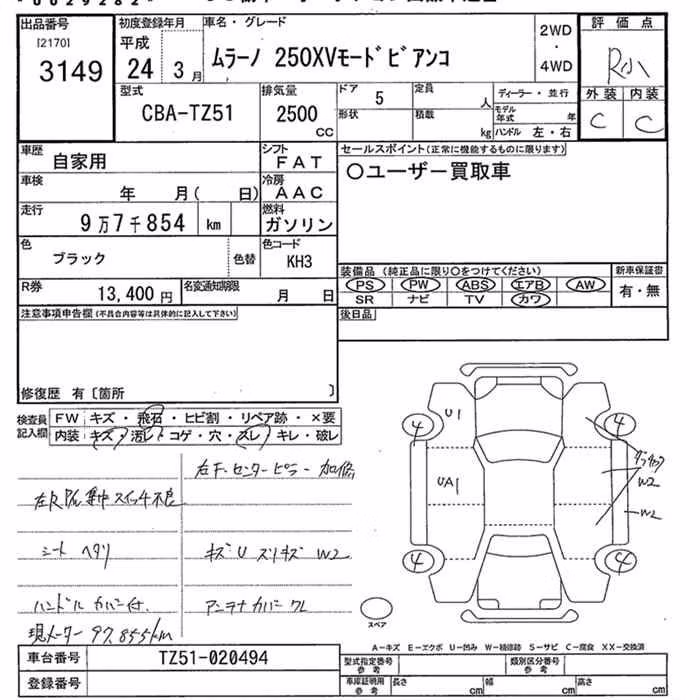 出品番号 初度登録年月 車名・グレード 評価点
[2170] 平成
3149 24 3月 ムラーノ 250XVモードビアンコ 2WD・4WD R小
型式 排気量 ドア 定員 ディーラー・並行 外装 内装
CBA-TZ51 2500 cc 5 人 モデル年式 年 C C
形状 積載 kg ハンドル 左・右
車歴 自家用 シフト FAT セールスポイント(正常に機能するものに限ります)
車検 年 月( 日) 冷房 AAC ○ユーザー買取車
走行 9万7千854 km 燃料 ガソリン
色 ブラック 色替 色コード KH3
装備品(純正品に限り○をつけてください) 新車保証書
PS PW ABS エアB AW 有・無
R券 13,400円 名変通知期限 月 日 SR ナビ TV カワ
注意事項申告欄(不具合内容等は具体的に記入して下さい) 後日品
修復歴 有〔箇所 〕
検査員記入欄 FW キズ・飛石・ヒビ割・リペア跡・×要
内装 キズ・汚レ・コゲ・穴・スレ・キレ・破レ
左F-センターピラー 加修
左R P/W 集中スイッチ不良
シート ヘタリ キズU スリキズ W2
ハンドル カバー付. アンテナカバークレ
現メーター 97,855km
4 U1 4
UA1 W2
W2
4 4
スペア
A-キズ E-エクボ U-凹み W-補修跡 S-サビ C-腐食 XX-交換済
車台番号 TZ51-020494 型式指定番号参考 類別区分番号参考
登録番号 車庫証明用参考 長さ cm 幅 cm 高さ cm